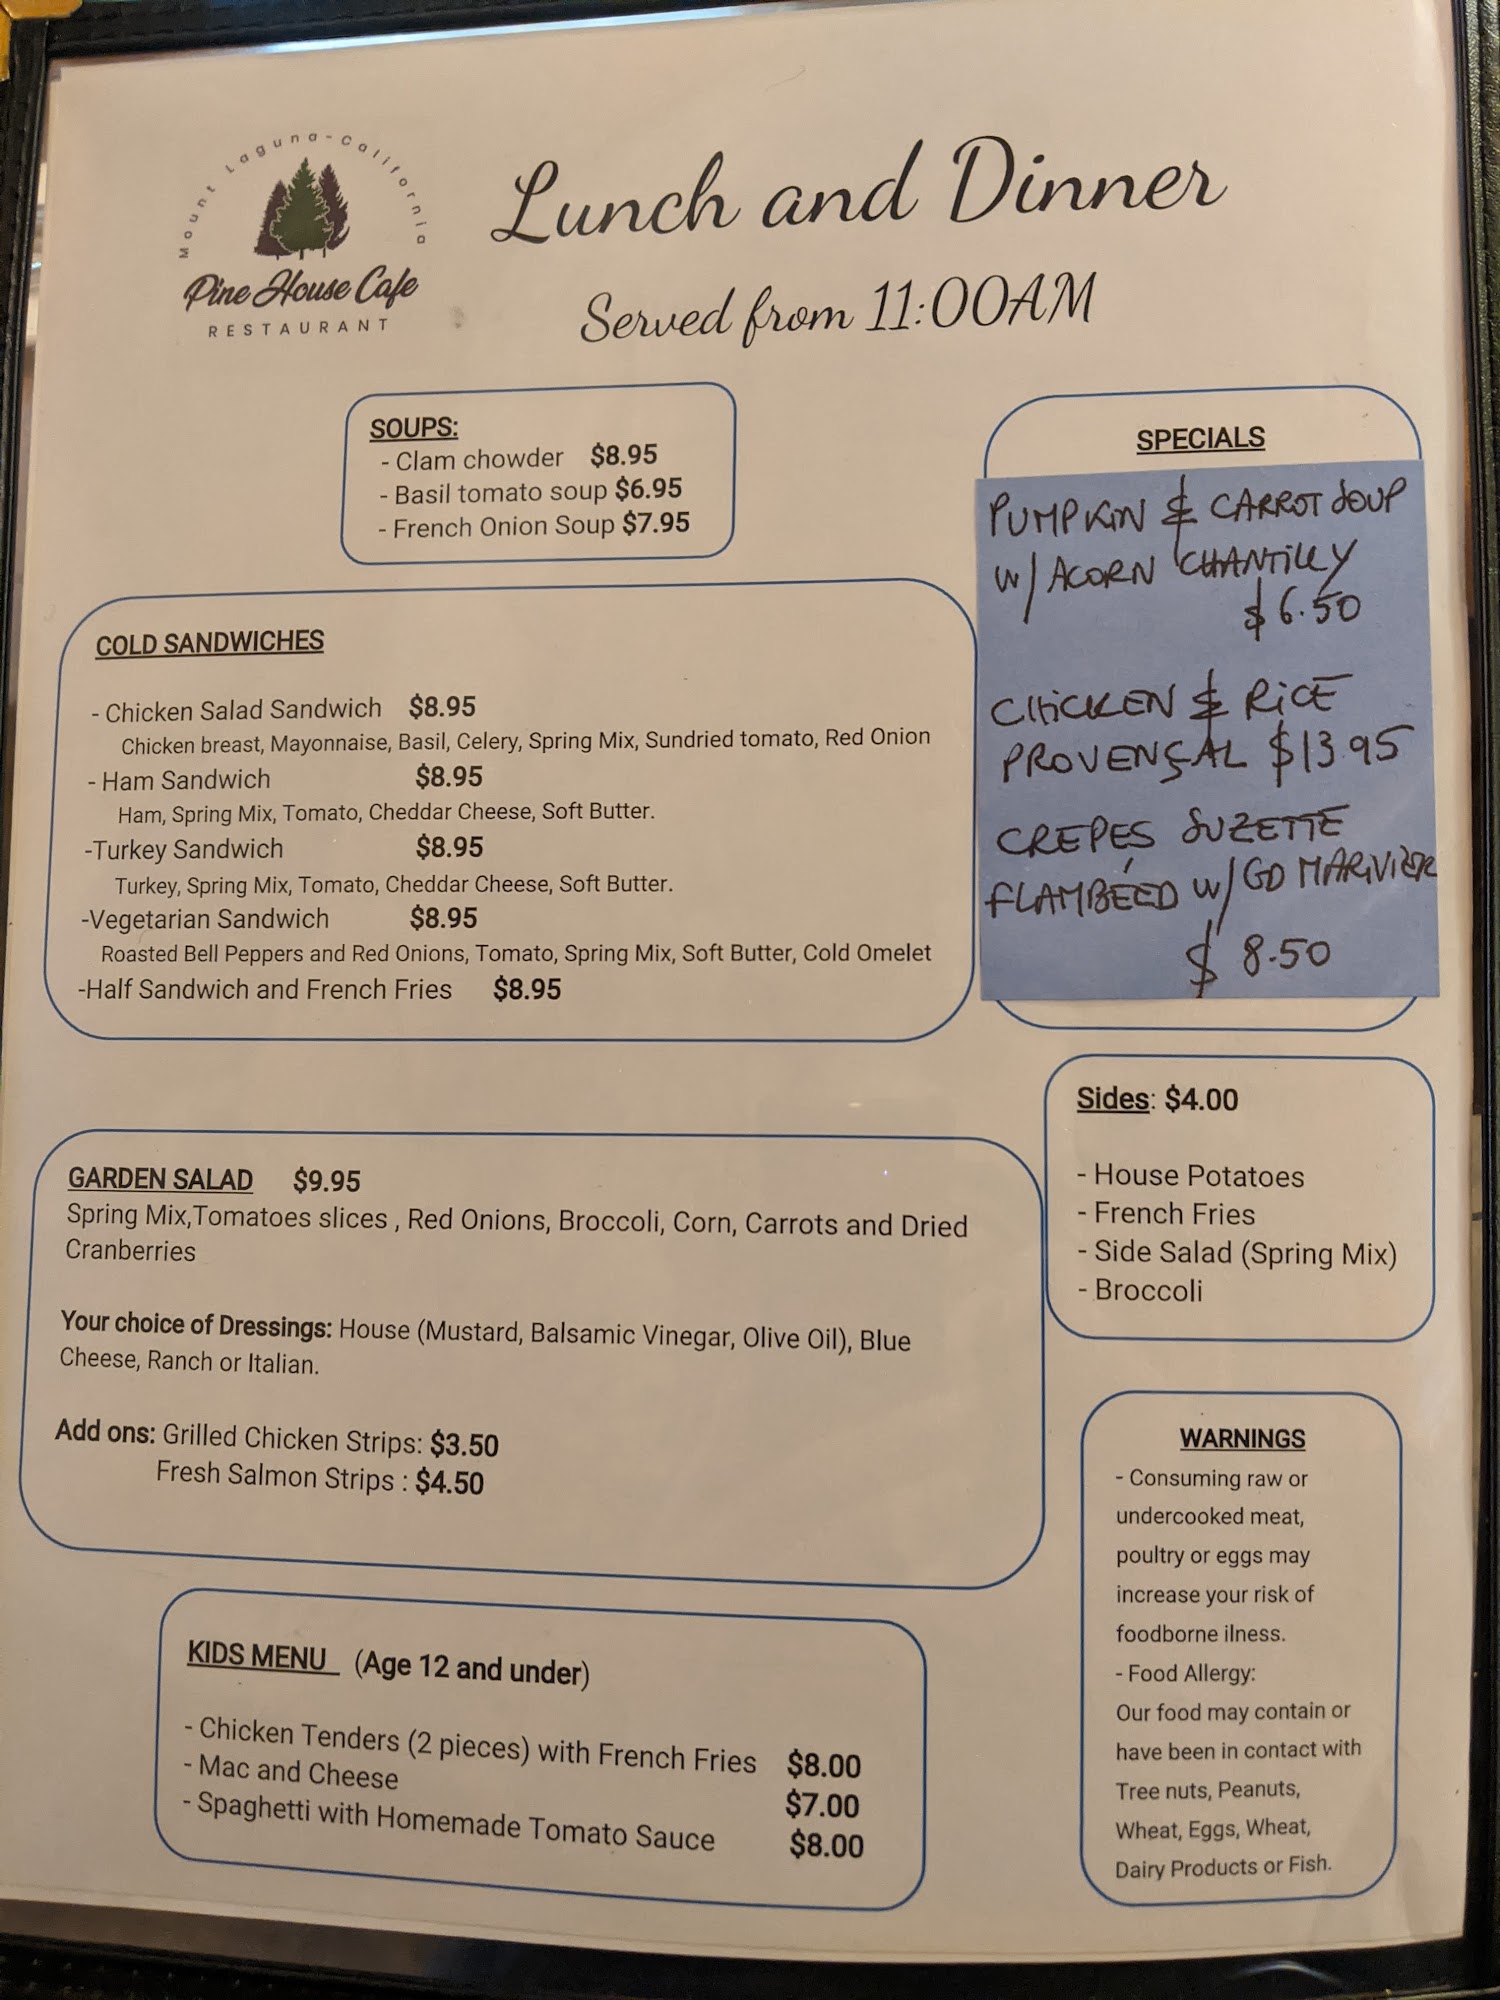 Mount Laguna-California
Pine House Cafe
RESTAURANT
Lunch and Dinner
Served from 11:00AM
SOUPS:
- Clam chowder $8.95
- Basil tomato soup $6.95
- French Onion Soup $7.95
SPECIALS
PUMPKIN & CARROT SOUP
W/ ACORN CHANTILLY
$6.50
CHICKEN & RICE
PROVENÇAL $13.95
CREPES SUZETTE
FLAMBÉED W/ GD MARIVIER
$8.50
COLD SANDWICHES
- Chicken Salad Sandwich $8.95
Chicken breast, Mayonnaise, Basil, Celery, Spring Mix, Sundried tomato, Red Onion
- Ham Sandwich $8.95
Ham, Spring Mix, Tomato, Cheddar Cheese, Soft Butter.
-Turkey Sandwich $8.95
Turkey, Spring Mix, Tomato, Cheddar Cheese, Soft Butter.
-Vegetarian Sandwich $8.95
Roasted Bell Peppers and Red Onions, Tomato, Spring Mix, Soft Butter, Cold Omelet
-Half Sandwich and French Fries $8.95
Sides: $4.00
- House Potatoes
- French Fries
- Side Salad (Spring Mix)
- Broccoli
GARDEN SALAD $9.95
Spring Mix,Tomatoes slices , Red Onions, Broccoli, Corn, Carrots and Dried
Cranberries
Your choice of Dressings: House (Mustard, Balsamic Vinegar, Olive Oil), Blue
Cheese, Ranch or Italian.
Add ons: Grilled Chicken Strips: $3.50
Fresh Salmon Strips : $4.50
WARNINGS
- Consuming raw or
undercooked meat,
poultry or eggs may
increase your risk of
foodborne ilness.
- Food Allergy:
Our food may contain or
have been in contact with
Tree nuts, Peanuts,
Wheat, Eggs, Wheat,
Dairy Products or Fish.
KIDS MENU (Age 12 and under)
- Chicken Tenders (2 pieces) with French Fries $8.00
- Mac and Cheese $7.00
- Spaghetti with Homemade Tomato Sauce $8.00